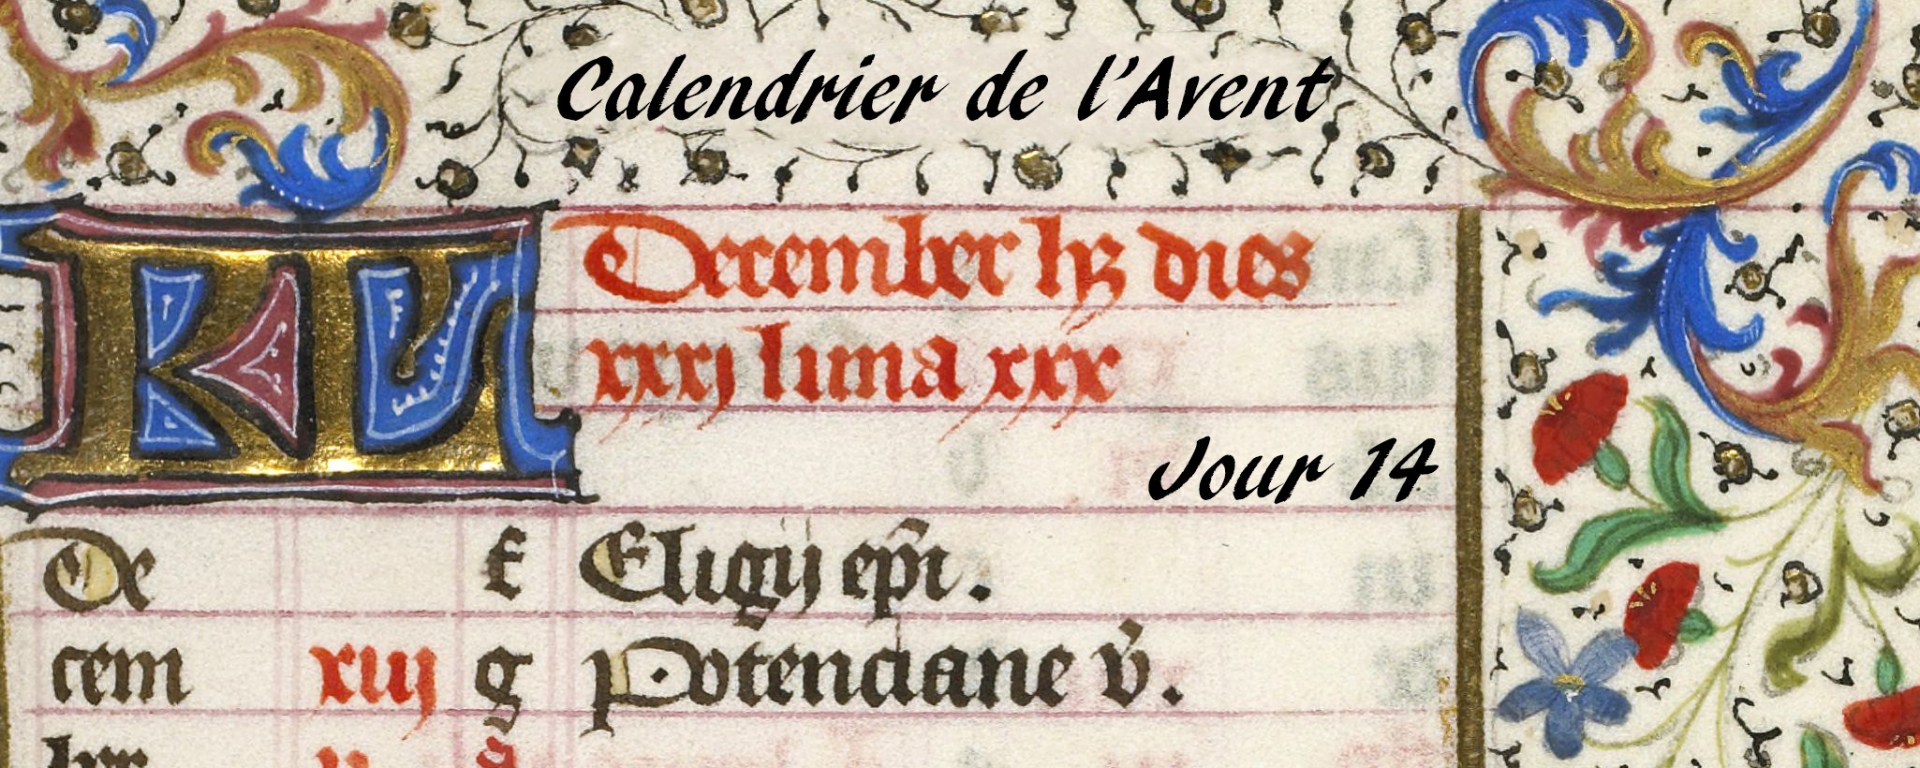 Calendrier de l'Avent
KL December hꝫ dies
xxxj luna xxx
Jour 14
De f Eligij ep̃i.
cem xiij g Potenciane v̉.